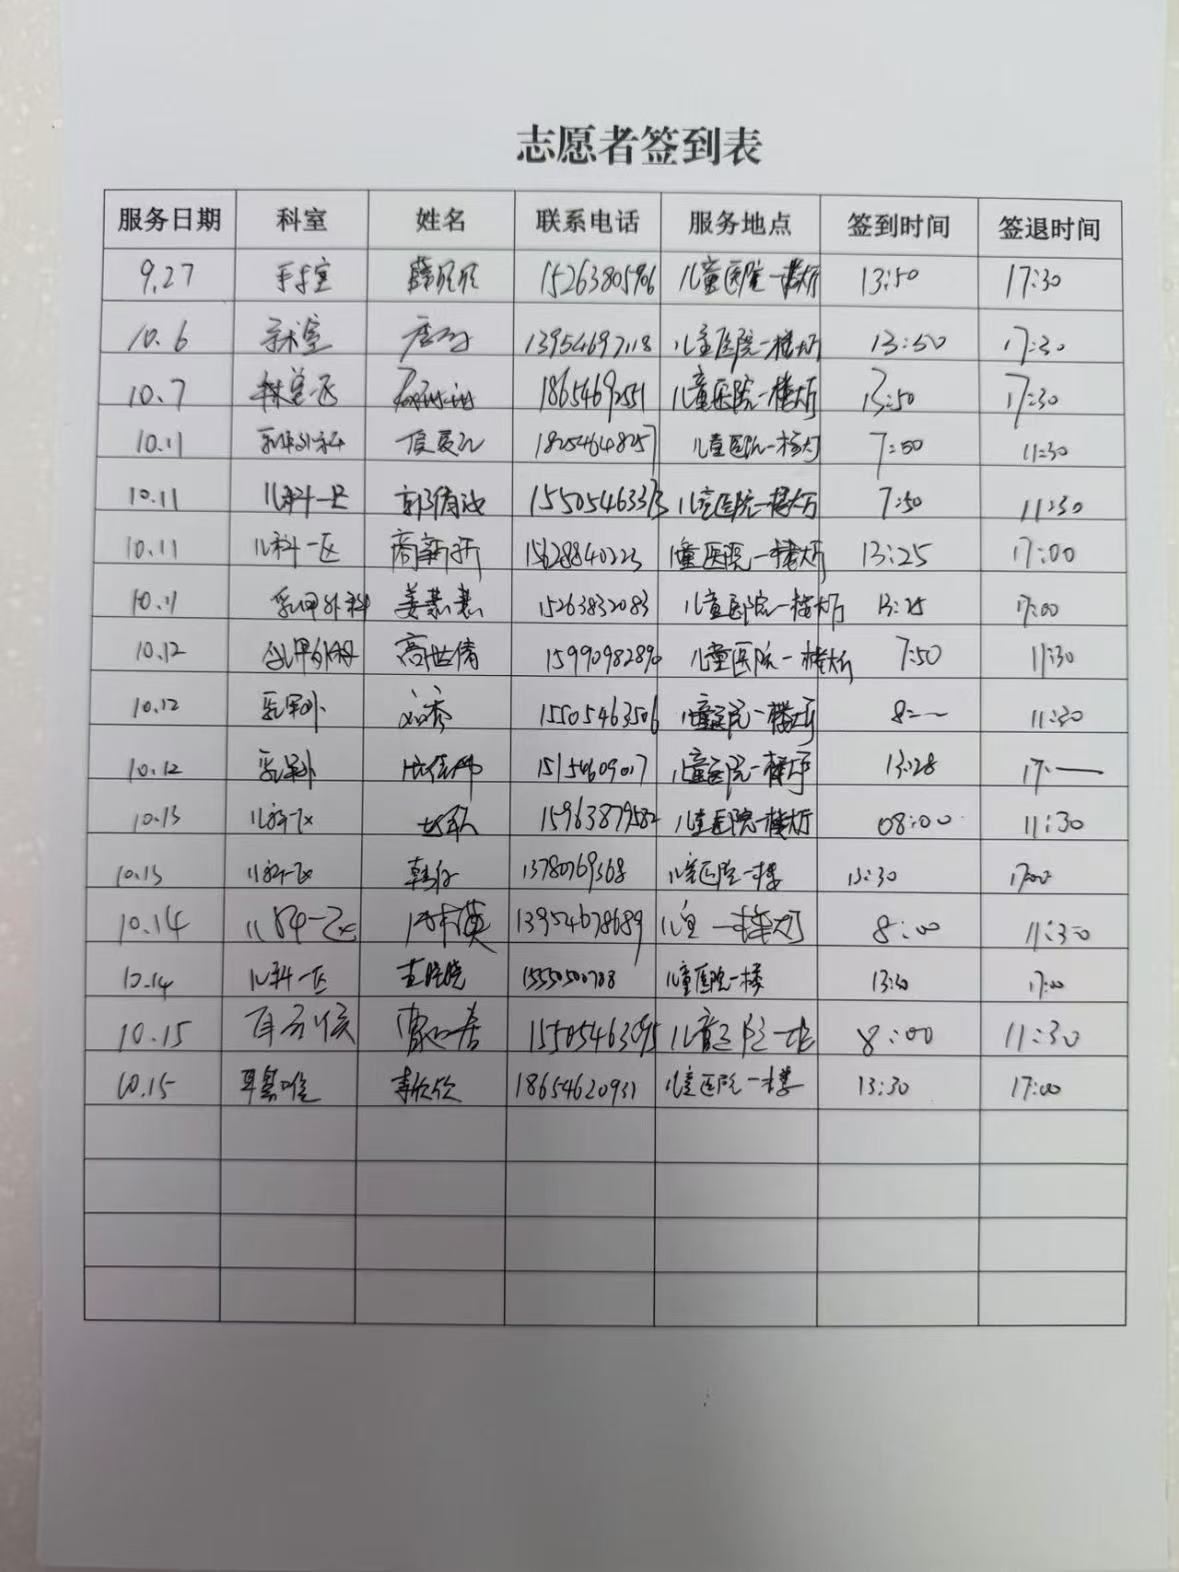 志愿者签到表
服务日期 科室 姓名 联系电话 服务地点 签到时间 签退时间
9.27 手术室 薛欣欣 15263805706 儿童医院一楼大厅 13:50 17:30
10.6 手术室 13954697118 儿童医院一楼大厅 13:50 17:30
10.7 18654692551 儿童医院一楼大厅 13:50 17:30
10.11 乳甲外科 18254648257 儿童医院一楼大厅 7:50 11:30
10.11 儿科一区 郭倩 15505463373 儿童医院一楼大厅 7:50 11:30
10.11 儿科一区 商新新 15628840223 儿童医院一楼大厅 13:25 17:00
10.11 乳甲外科 姜慧慧 15263832083 儿童医院一楼大厅 13:25 17:00
10.12 乳甲外科 高世倩 儿童医院一楼大厅 7:50 11:30
10.12 乳甲外 15505463506 儿童医院一楼大厅 8:— 11:30
10.12 乳甲外 儿童医院一楼大厅 13:28 17:—
10.13 儿科一区 15963879582 儿童医院一楼大厅 08:00 11:30
10.13 儿科一区 13780769368 儿童医院一楼 13:30 17:00
10.14 儿科一区 13954678689 儿童一楼大厅 8:00 11:30
10.14 儿科一区 15550500788 儿童医院一楼 13:30 17:00
10.15 耳鼻喉 15505463095 儿童医院一楼 8:00 11:30
10.15 耳鼻喉 李欣欣 18654620931 儿童医院一楼 13:30 17:00